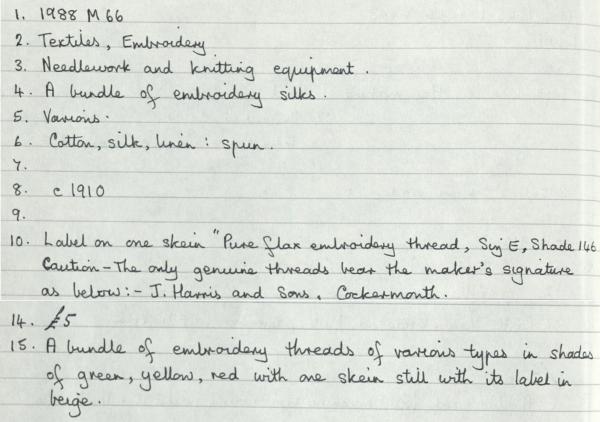 1. 1988 M 66
2. Textiles, Embroidery
3. Needlework and knitting equipment.
4. A bundle of embroidery silks.
5. Various.
6. Cotton, silk, linen : spun.
7.
8. c 1910
9.
10. Label on one skein "Pure flax embroidery thread, Suj E, Shade 146
Caution - The only genuine threads bear the maker's signature
as below:- J. Harris and Sons. Cockermouth.
14. £5
15. A bundle of embroidery threads of various types in shades
of green, yellow, red with one skein still with its label in
beige.